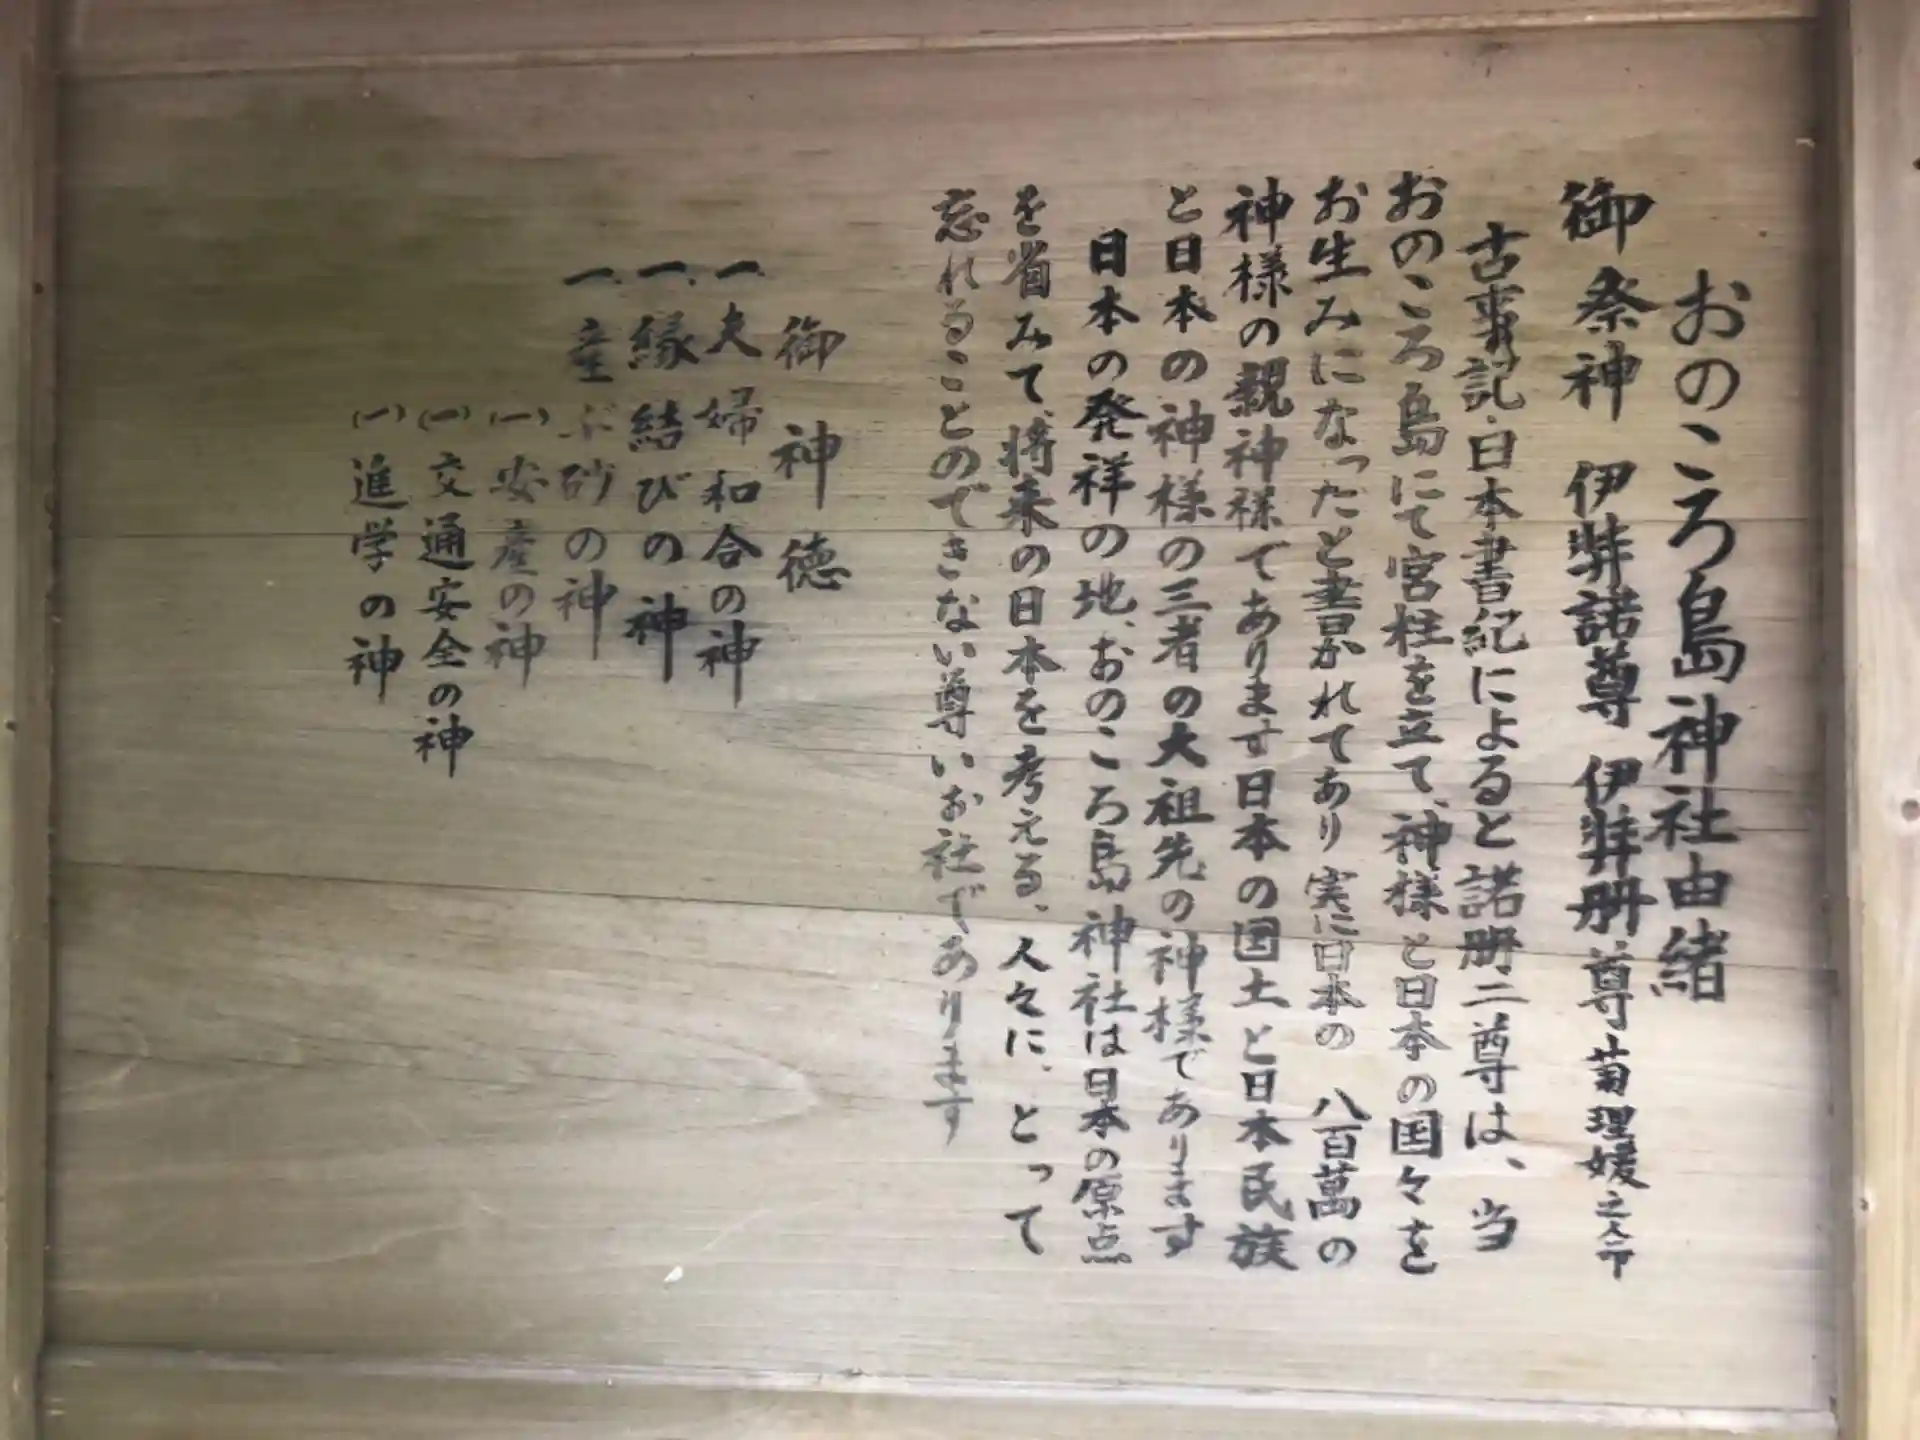 おのころ島神社由緒
御祭神 伊弉諾尊 伊弉冊尊 菊理媛之命
古事記・日本書紀によると諾冊二尊は、当
おのころ島にて宮柱を立て、神様と日本の国々を
お生みになったと書かれてあり 実に日本の 八百萬の
神様の親神様てあります日本の国土と日本民族
と日本の神様の三者の大祖先の神様であります
日本の発祥の地、おのころ島神社は日本の原点
を省みて、将来の日本を考える、人々に、とって
忘れることのできない尊いお社であります
御神徳
一、夫婦和合の神
一、縁結びの神
一、産ぶ砂の神
(一)安産の神
(一)交通安全の神
(一)進学の神